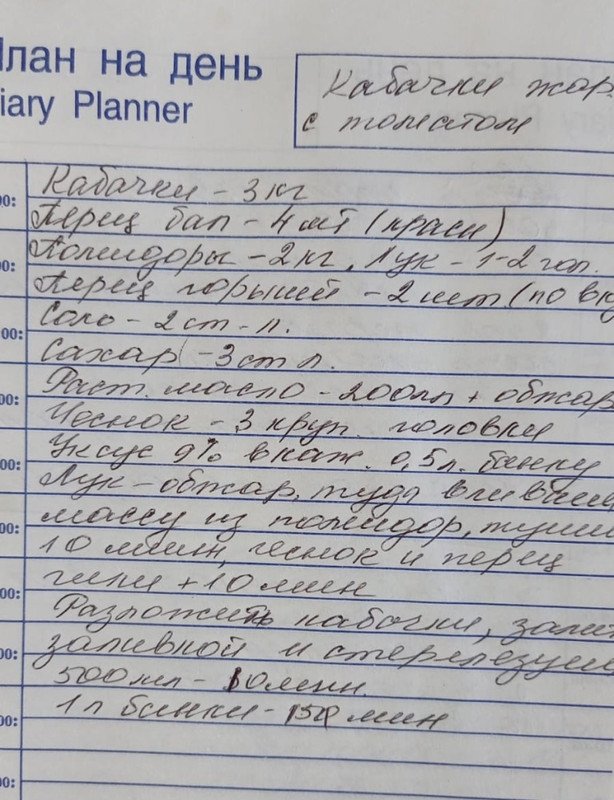 План на день
iary Planner
Кабачки жар
с томатом
Кабачки - 3 кг
Перец бол - 4 шт (красн)
Помидоры - 2 кг, Лук - 1-2 гол.
Перец горький - 2 шт (по вку
Соль - 2 ст - л.
Сахар - 3 ст л.
Раст. масло - 200мл + обжар
Чеснок - 3 круп. головки
Уксус 9% в каж. 0,5 л. банку
Лук - обжар, туда вливаем
массу из помидор, тушим
10 мин, чеснок и перец
чили + 10 мин
Разложить кабачки, залит
заливкой и стерелезуем
500 мл - 10 мин.
1 л банки - мин
00:
00:
00:
00:
00:
00:
00:
00:
00:
00: